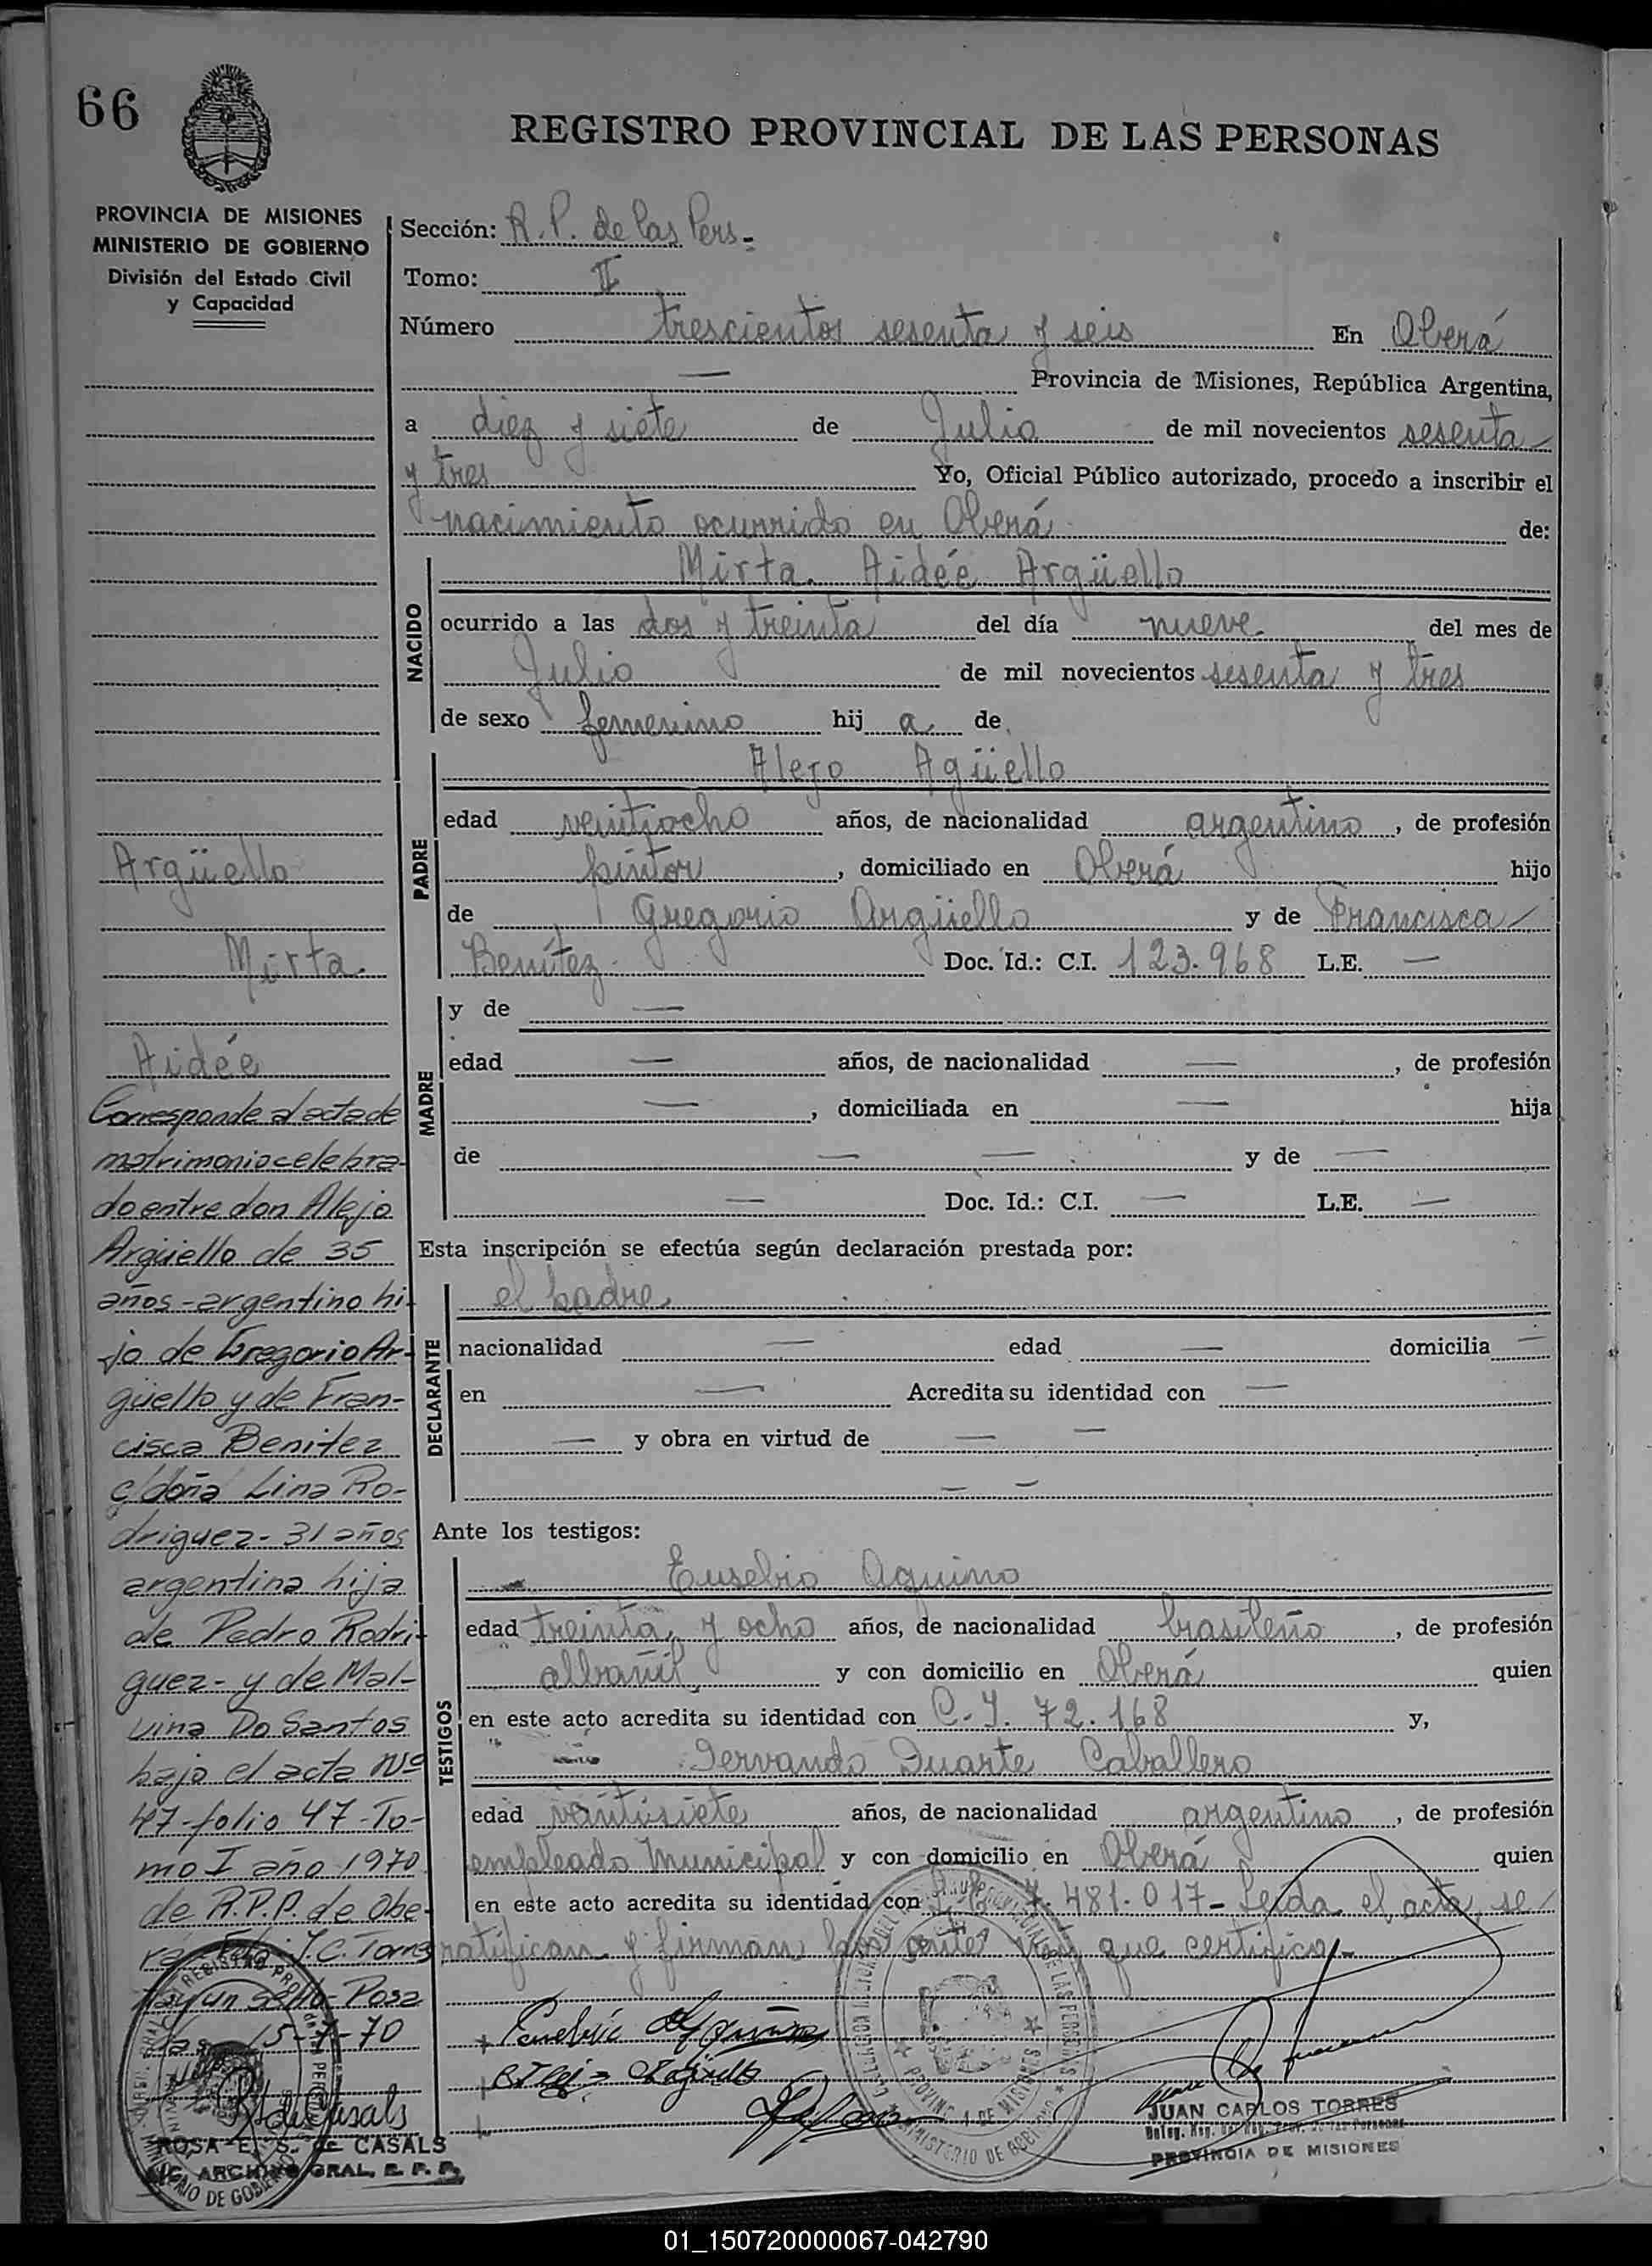 66
REGISTRO PROVINCIAL DE LAS PERSONAS
PROVINCIA DE MISIONES
MINISTERIO DE GOBIERNO
División del Estado Civil
y Capacidad
Sección: R.P. de las Pers.-
Tomo: II
Número trescientos sesenta y seis En Oberá
— Provincia de Misiones, República Argentina,
a diez y siete de Julio de mil novecientos sesenta
y tres Yo, Oficial Público autorizado, procedo a inscribir el
nacimiento ocurrido en Oberá de:
NACIDO
Mirta Aidée Argüello
ocurrido a las dos y treinta del día nueve del mes de
Julio de mil novecientos sesenta y tres
de sexo femenino hij a de
PADRE
Alejo Agüello
edad veintiocho años, de nacionalidad argentino, de profesión
pintor, domiciliado en Oberá hijo
de Gregorio Argüello y de Francisca
Benítez Doc. Id.: C.I. 123.968 L.E. —
MADRE
y de —
edad — años, de nacionalidad —, de profesión
—, domiciliada en — hija
de — — y de —
— Doc. Id.: C.I. — L.E. —
Esta inscripción se efectúa según declaración prestada por:
DECLARANTE
el padre
nacionalidad — edad — domicilia —
en — Acredita su identidad con —
— y obra en virtud de — —
— —
Ante los testigos:
TESTIGOS
Eusebio Aquino
edad treinta y ocho años, de nacionalidad brasileño, de profesión
albañil y con domicilio en Oberá quien
en este acto acredita su identidad con C.I. 72.168 y,
Servando Duarte Caballero
edad veintisiete años, de nacionalidad argentino, de profesión
empleado Municipal y con domicilio en Oberá quien
en este acto acredita su identidad con 7.481.017- Leída el acta, se
ratifican y firman por ante que certifico.-
Argüello
Mirta
Aidée
Corresponde al acta de
matrimonio celebra-
do entre don Alejo
Argüello de 35
años-argentino hi-
jo de Gregorio Ar-
güello y de Fran-
cisca Benitez
c/doña Lina Ro-
driguez-31 años
argentina hija
de Pedro Rodri-
guez-y de Mal-
vina Do Santos
bajo el acta Nº
47-folio 47-To-
mo I año 1970
de R.P.P. de Obe-
rá J.C. Torres
Hay un sello-Posa
das 15-70
ROSA E. S. de CASALS
ARCHIVO GRAL. R. P. P.
JUAN CARLOS TORRES
PROVINCIA DE MISIONES
01_150720000067-042790